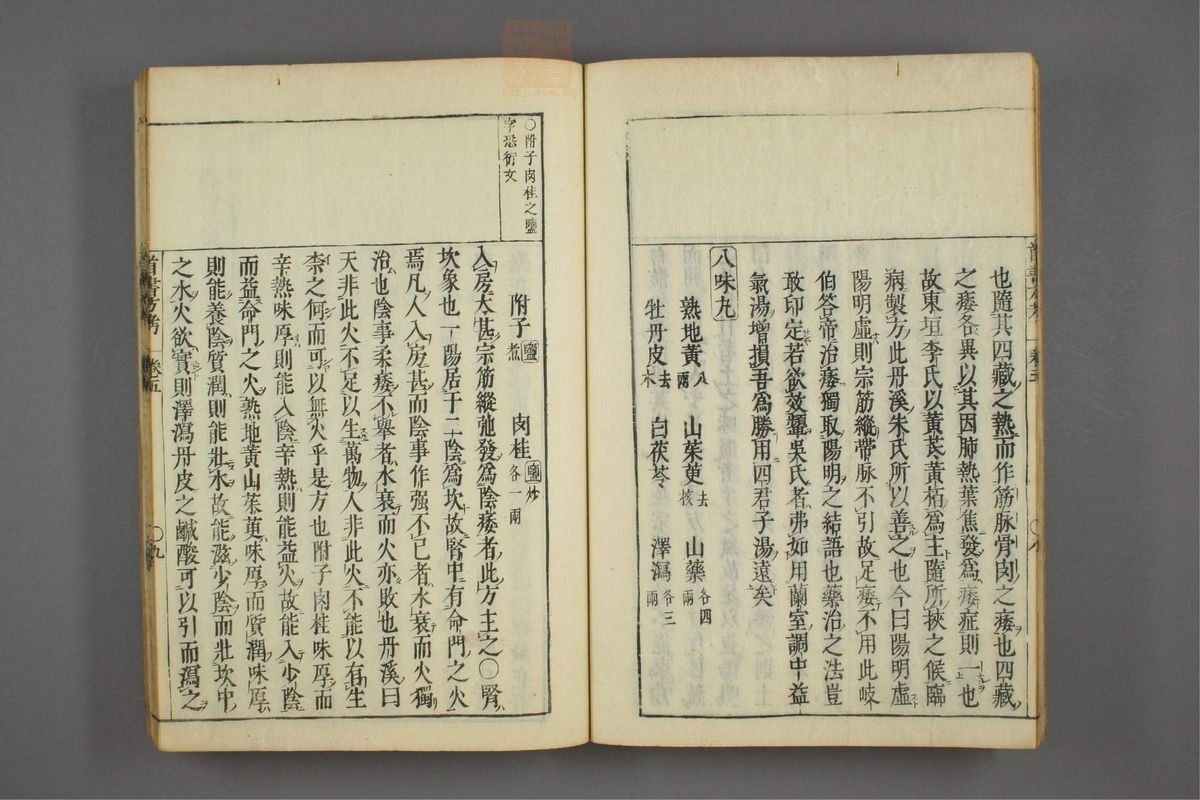 也隨其四藏之熱而作筋脉骨肉之痿也四藏
之痿各異以其因肺熱葉焦發爲痿症則一也
故東垣李氏以黃芪黃栢爲主隨所挾之候臨
病製方此丹溪朱氏所以善之也今曰陽明虛
陽明虛則宗筋縱帶脉不引故足痿不用此岐
伯答帝治痿獨取陽明之結語也藥治之法豈
敢印定若欲效顰吳氏者弗如用蘭室調中益
氣湯增損吾爲勝用四君子湯遠矣
八味丸
熟地黃八兩 山茱萸去核 山藥各四兩
牡丹皮去木 白茯苓 澤瀉各三兩
〇八
〇附子肉桂之鹽
字恐衍文
附子鹽煮 肉桂鹽炒各一兩
入房太甚宗筋縱弛發爲陰痿者此方主之〇腎
坎象也一陽居于二陰爲坎故腎中有命門之火
焉凡人入房甚而陰事作强不已者水衰而火獨
治也陰事柔痿不舉者水衰而火亦敗也丹溪曰
天非此火不足以生萬物人非此火不能以有生
柰之何而可以無火乎是方也附子肉桂味厚而
辛熱味厚則能入陰辛熱則能益火故能入少陰
而益命門之火熟地黃山茱萸味厚而質潤味厚
則能養陰質潤則能壯水故能滋少陰而壯坎中
之水火欲實則澤瀉丹皮之鹹酸可以引而瀉之
卷五
〇九